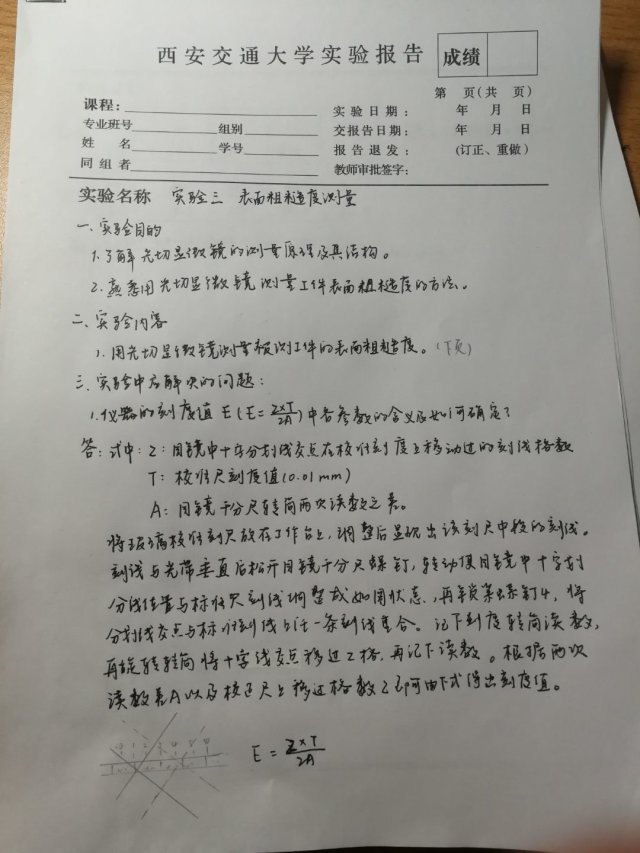 西安交通大学实验报告
成绩
第 页(共 页)
课程:
实验日期: 年 月 日
专业班号 组别
交报告日期: 年 月 日
姓 名 学号
报告退发: (订正、重做)
同组者
教师审批签字:
实验名称 实验三 表面粗糙度测量
一、实验目的
1.了解光切显微镜的测量原理及其结构。
2.熟悉用光切显微镜测量工件表面粗糙度的方法。
二、实验内容
1.用光切显微镜测量被测工件的表面粗糙度。(下页)
三、实验中应解决的问题:
1.仪器的刻度值E(E=Z×T/2A)中各参数的含义及如何确定?
答:式中:Z:目镜中十字分划线交点在校准刻度上移动过的刻线格数
T:校准尺刻度值(0.01mm)
A:目镜千分尺转筒两次读数之差。
将玻璃校准刻尺放在工作台上,调整后显现出该刻尺中段的刻线。
刻线与光带垂直后松开目镜千分尺螺钉,转动使目镜中十字划
分线位置与标准尺刻线调整成如图状态,再牢固紧螺钉4,将
分划线交点与标准刻线上任一条刻线重合。记下刻度转筒读数,
再旋转转筒将十字线交点移过Z格,再记下读数。根据两次
读数差A以及校正尺上移过格数Z即可由下式得出刻度值。
E=Z×T/2A